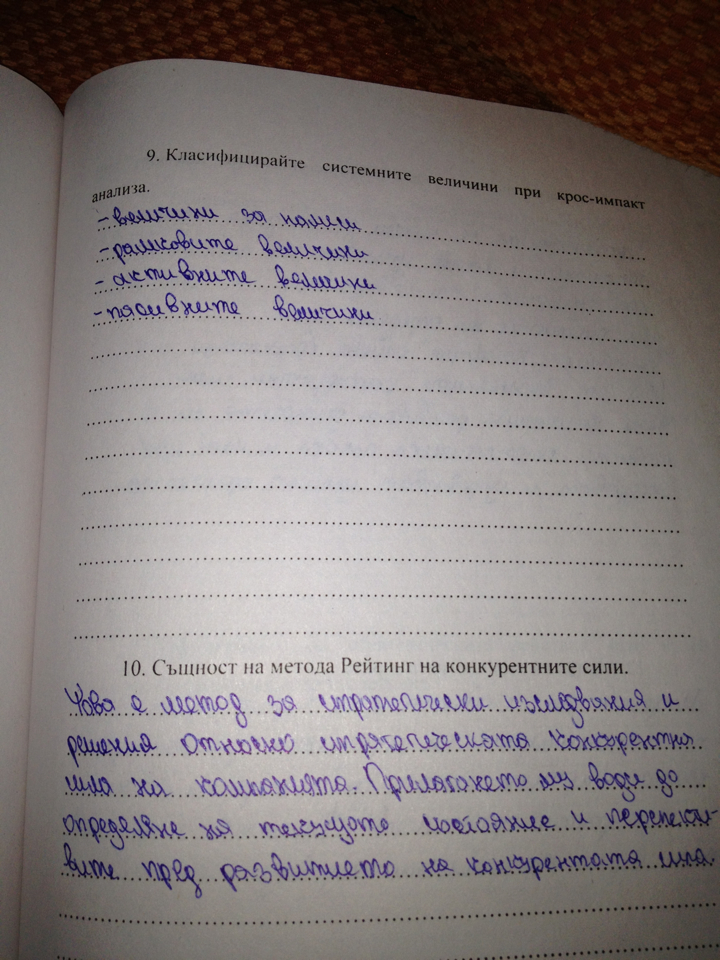 9. Класифицирайте системните величини при крос-импакт
анализа.
- величини за намеси
- рамковите величини
- активните величини
- пасивните величини
10. Същност на метода Рейтинг на конкурентните сили.
Това е метод за стратегически изследвания и
решения относно стратегическата конкурентна
сила на компанията. Прилагането му води до
определяне на текущото състояние и перспекти-
вите пред развитието на конкурентата сила.